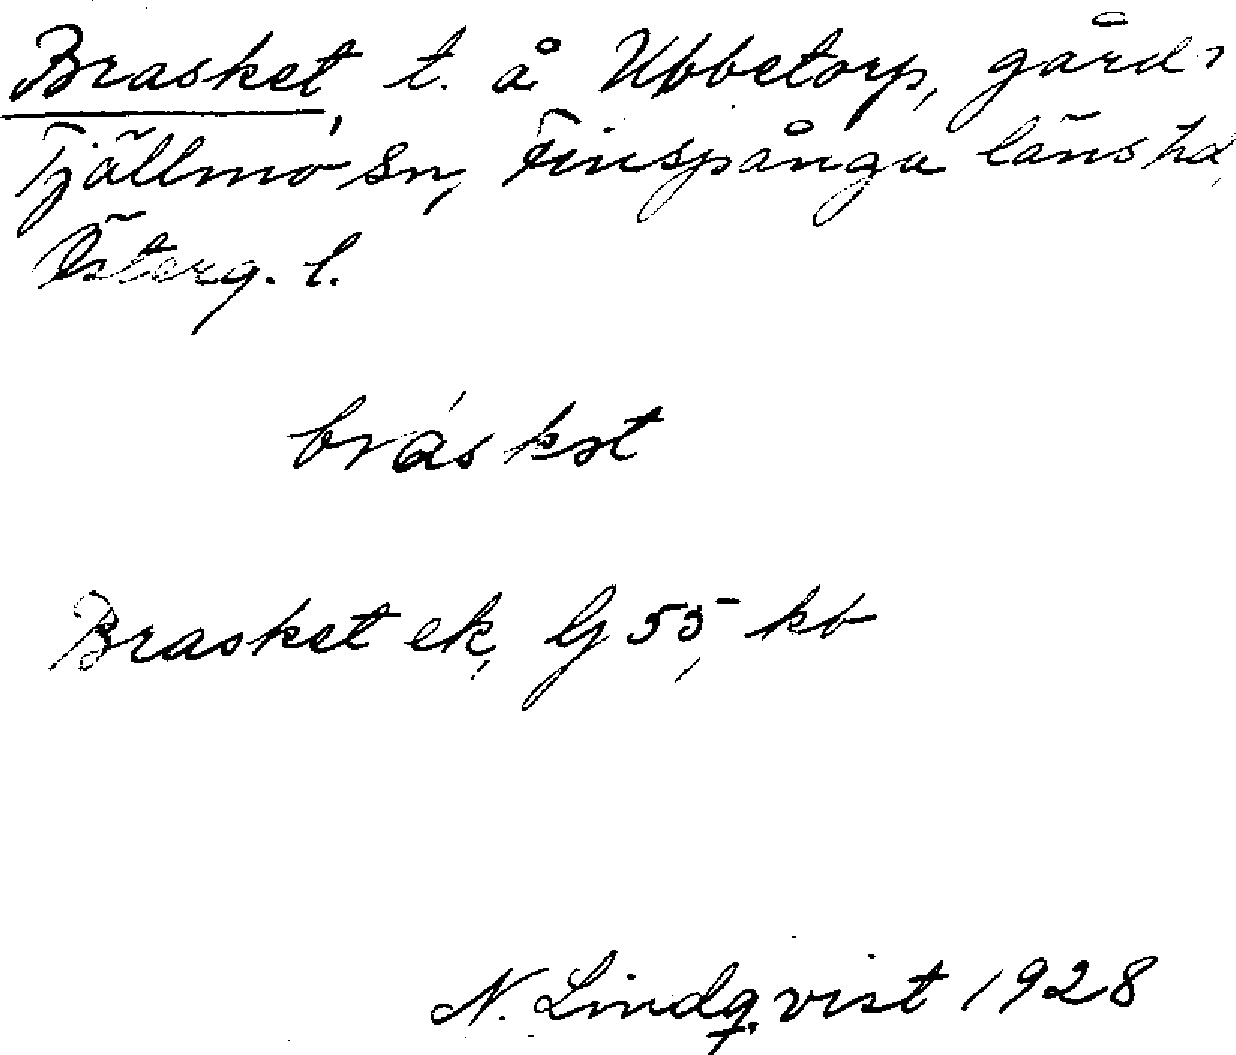 Brasket, t. å Ubbetorp, gård,
Tjällmo sn, Finspånga länshd,
Österg. l.
bráskət
Brasket ek, G 55, kb
N. Lindqvist 1928